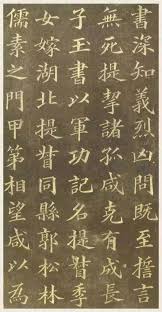 書深知義烈凶問既至誓言
無死提挈諸孤咸克有成長
子王書以軍功記名提督季
女嫁湖北提督同縣郭松林
儒素之門甲第相望咸以為